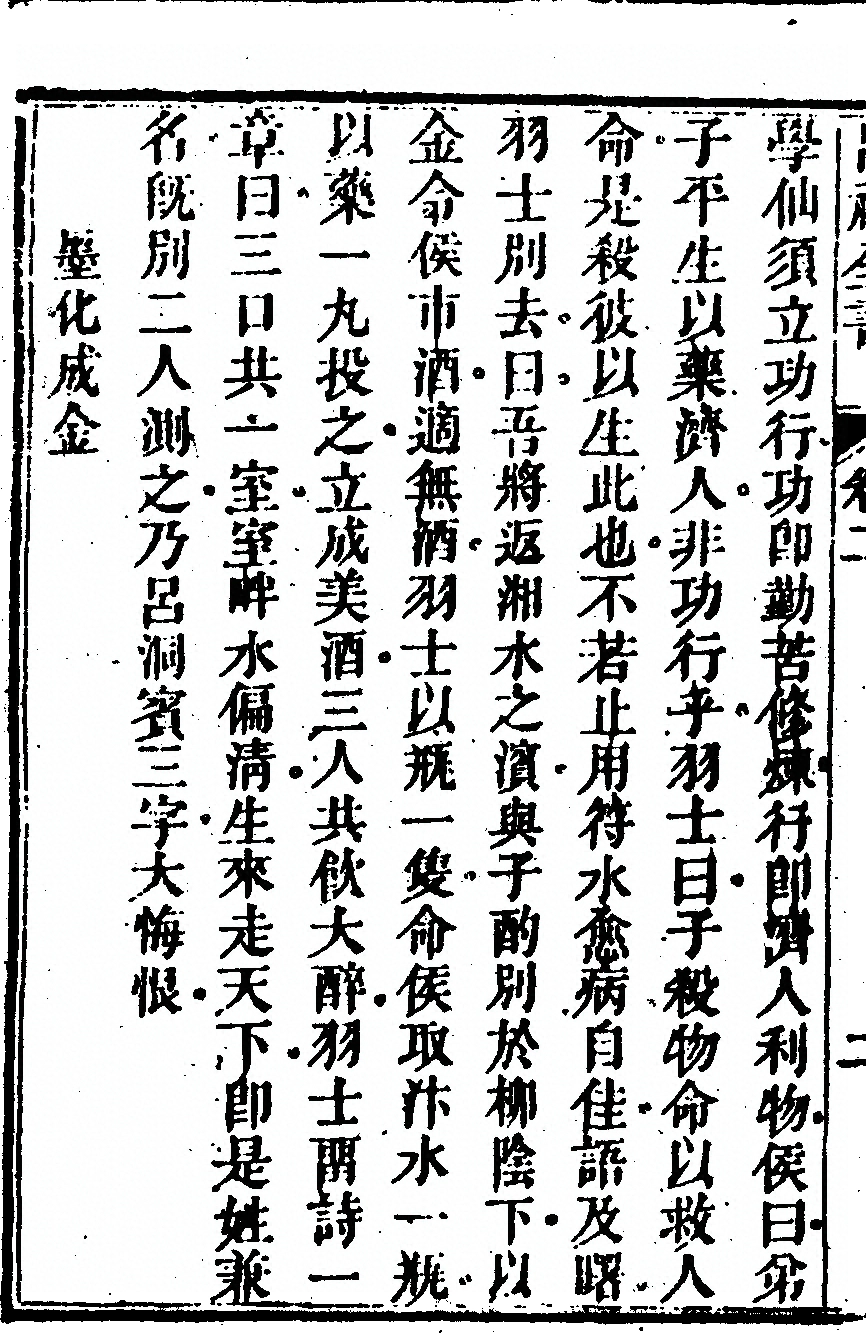 學仙須立功行功卽勤苦修煉行卽濟人利物侯曰弟
子平生以藥濟人非功行乎羽士曰子殺物命以救人
命是殺彼以生此也不若止用符水愈病自佳語及曙
羽士別去曰吾將返湘水之濱與子酌別於柳陰下以
金命侯市酒適無酒羽士以瓶一隻命侯取汴水一瓶
以藥一丸投之立成美酒三人共飲大醉羽士留詩一
章曰三口共一室室畔水偏清生來走天下卽是姓兼
名旣別二人測之乃呂洞賓三字大悔恨
墨化成金